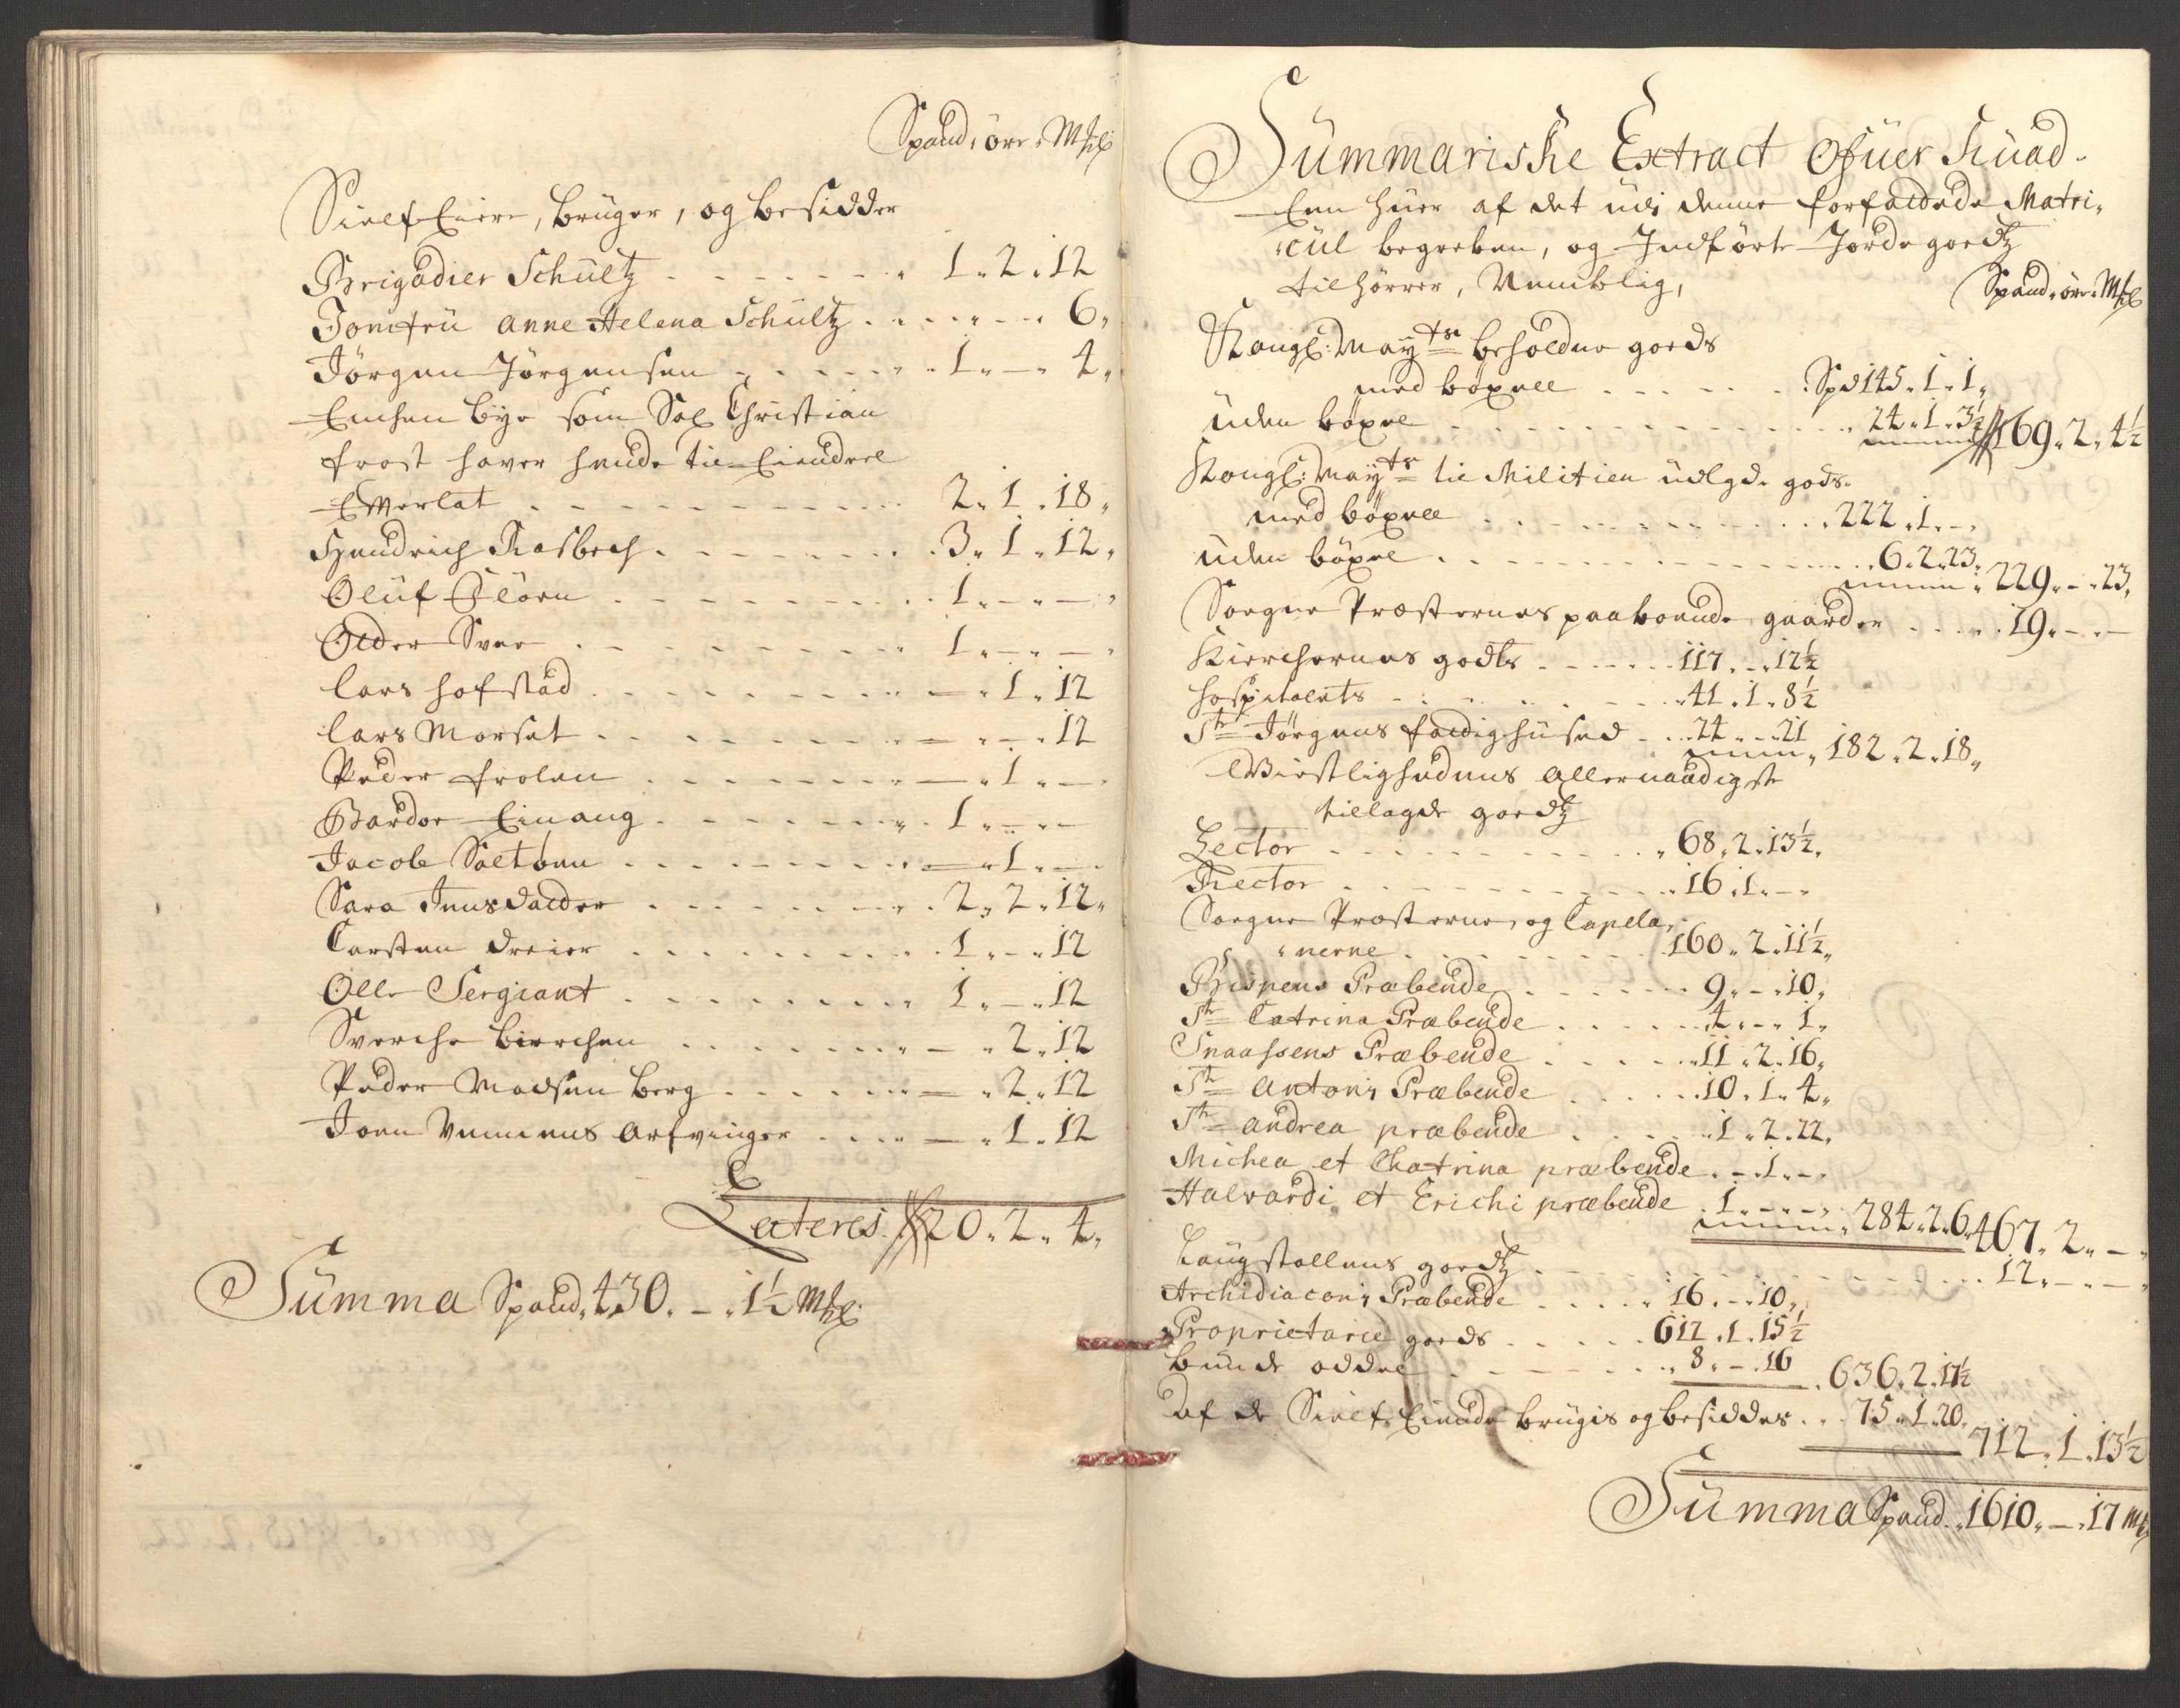 Spand, öre, Mkl:
Sielf Eiere, bruger, og besidder
Brigadier Schultz - - - - 1 " 2 " 12
Jomfru Anne Helena Schultz - - - - 6 "
Jörgen Jörgensen - - - - 1 " — " 4 "
Enchen bye som Sal Christian
frost hever hende til Eiendeel
Everlat - - - - 2 " 1 " 18 "
Hendrich Kasberg - - - - 3 " 1 " 12 "
Oluf Flörn - - - - 1 " — " —
Older Svee - - - - 1 " — " —
Lars hofstad - - - - — " 1 " 12
Lars Morset - - - - — " — " 12
Peder frolen - - - - — " 1 " —
Bardor Einang - - - - 1 " — " —
Jacob Saltönn - - - - — " 1 " —
Sara Jensdatter - - - - 2 " 2 " 12 "
Carsten dreier - - - - 1 " — " 12
Olle Sergiant - - - - 1 " — " 12
Sverche bierchen - - - - — " 2 " 12
Peder Madsen berg - - - - — " 2 " 12
Joen Vennens arfvinger - - - - — " 1 " 12
Lateris 20 " 2 " 4 "
Summa Spand, 430 " — " 1½ Mkl:
Summariske Extract Ofuer huad
Een huer af det udi denne forfattede Matri-
cul begreben, og Indförte Jordegoedtz
tilhörrer, Nemblig,
Spand, öre, Mkl
Kongl: Mayts beholdne goeds
med böxell - - - - Spd 145 " 1 " 1 "
uden böxel - - - - 24 " 1 " 3½ 169 " 2 " 4½
Kongl: Mayts til Militien udlgde gods
med böxell - - - - 222 " 1 " —
uden böxel - - - - 6 " 2 " 23 " 229 " — " 23 "
Sogne Præsternes paaboende gaarder - - - - 19 " — " —
Kierchernes godts - - - - 117 " — " 12½
hospitalets - - - - 41 " 1 " 8½
St Jörgens fattighused - - 24 " — " 21 182 " 2 " 18 "
Giestlighedens allernaadigste
tillagde goedtz
Lector - - - - 68 " 2 " 13½ "
Rector - - - - 16 " 1 " —
Sogne Præsterne, og Capela-
nerne - - - - 160 " 2 " 11½ "
Bispens Præbende - - - - 9 " — " 10 "
St Catrina Præbende - - - - 4 " — " 1 "
Snaassens Præbende - - - - 11 " 2 " 16 "
St Antony Præbende - - - - 10 " 1 " 4 "
St Andrea præbende - - - - 1 " 2 " 22 "
Michea et Chatrina præbende - — " 1 " —
Halvardi et Erichi præbende 1 " — " — 284 " 2 " 6 " 467 " 2 " —
Laugstollens goedtz - - - - 12 " — " —
Archidiacony Præbende - - - - 16 " — " 10 "
Proprietarie goeds - - - - 612 " 1 " 15½
bunde oddel - - - - 8 " — " 16 636 " 2 " 17½
af de Sielf Eiende brugis og besiddes - - 75 " 1 " 20 " 712 " 1 " 13½
Summa Spand " 1610 " — " 17 Mk